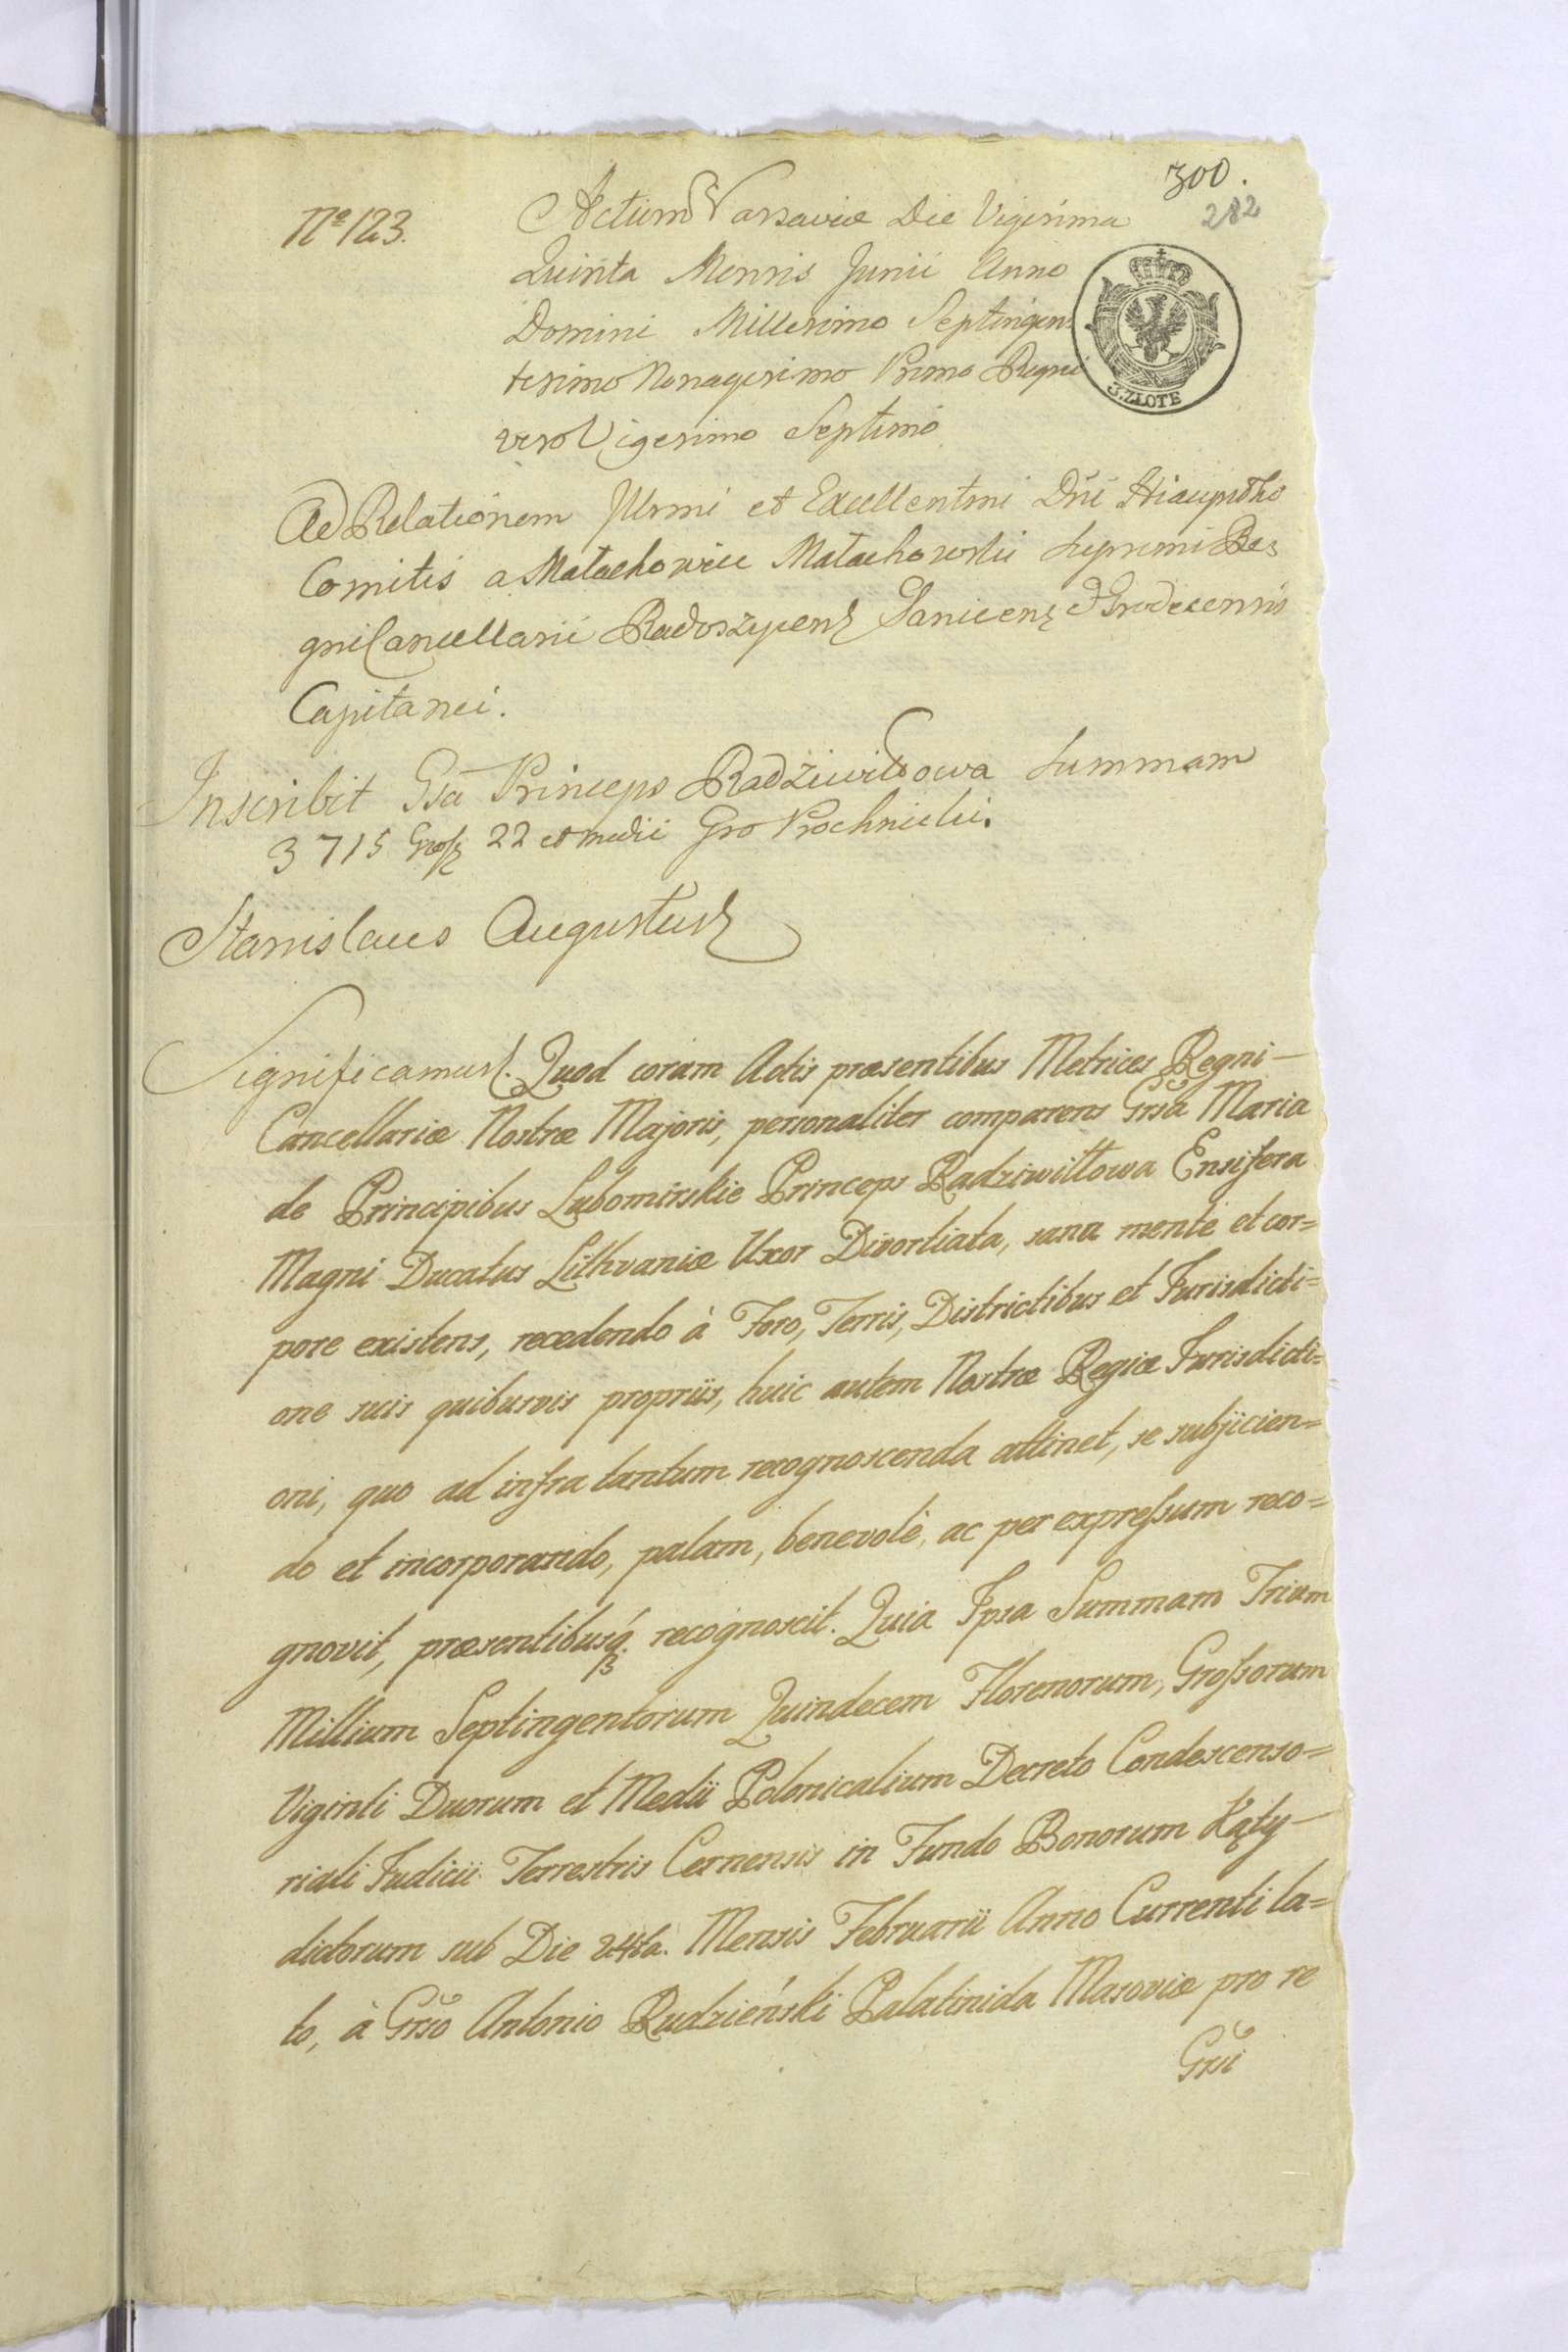 300.
282
Nº 123.
Actum Varsaviæ Die Vigesima
Quinta Mensis Junii Anno
Domini Millesimo Septingen=
tesimo Nonagesimo Primo Regni
vero Vigesimo Septimo
3. ZŁOTE
Ad Relationem Illrmi et Excellentmi Dni
Comitis a Małachowice Małachowski Supremi Re=
gni Cancellarii Radoszycens Sanicens & Grodecensis
Capitanei.
Inscribit Gsa Princeps Radziwiłłowa Summam
3715 Gross 22 et medii Gso Prochnicki.
Stanislaus Augustus
Significamus. Quod coram Actis præsentibus Metrices Regni—
Cancellariæ Nostræ Majoris, personaliter comparens Grsa Maria
de Principibus Lubomirskie Princeps Radziwiłłowa Ensifera
Magni Ducatus Lithvaniæ Uxor Divortiata, sana mente et cor=
pore existens, recedendo à Foro, Terris, Districtibus et Jurisdicti=
one suis quibusvis propriis, huic autem Nostræ Regiæ Jurisdicti=
oni, quo ad infra tantum recognoscenda attinet, se subjicien=
do et incorporando, palam, benevolè, ac per expressum reco=
gnovit, præsentibusq. recognoscit. Quia Ipsa Summam Trium
Millium Septingentorum Quindecem Florenorum, Grossorum
Viginti Duorum et Medii Polonicalium Decreto Condescenso=
riali Judicii Terrestris Cernensis in Fundo Bonorum Kąty—
dictorum sub Die 24ta. Mensis Februarii Anno Currenti la=
to, à Grso Antonio Rudzieński Palatinida Masoviæ pro re
Grsi